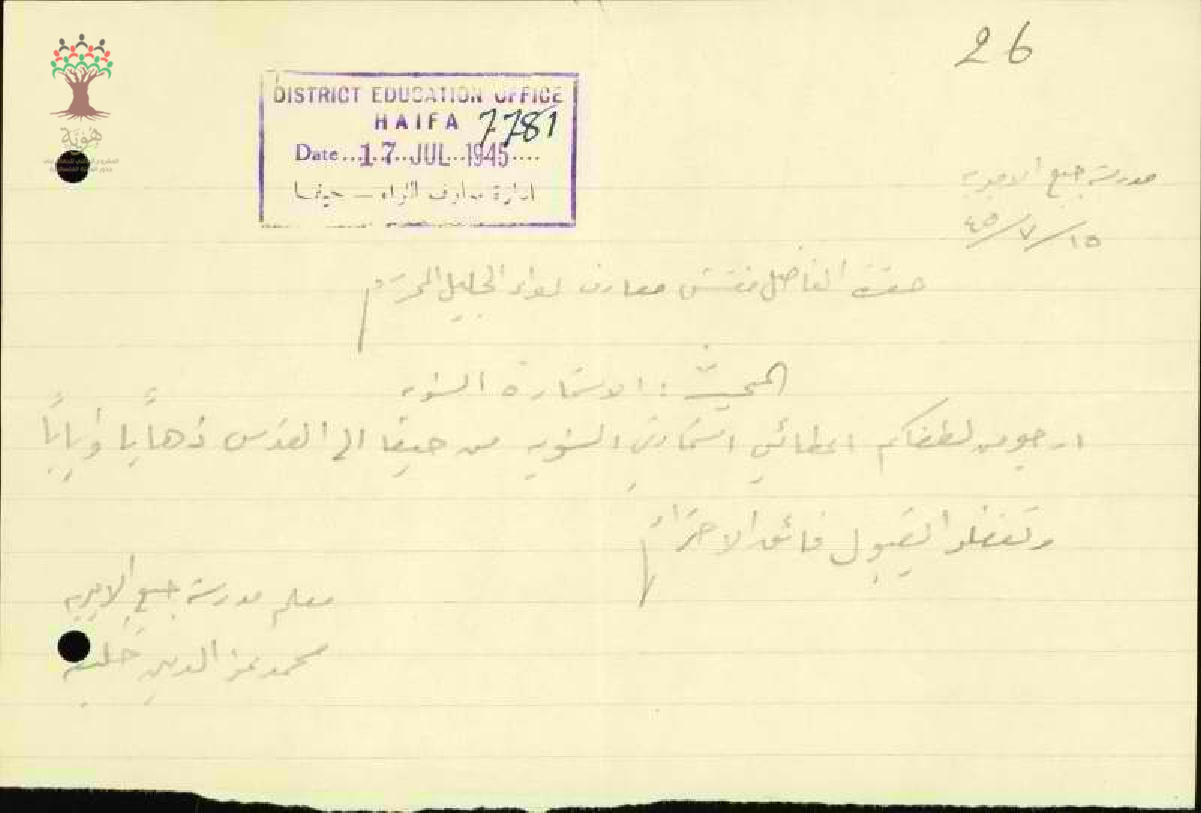 26
DISTRICT EDUCATION OFFICE
HAIFA 7781
Date..17 JUL 1945....
ادارة معارف اللواء – حيفا
هُوِيَّة
مدرسة جبع الاميرية
١٥/٧/٤٥
حضرة الفاضل مفتش معارف لواء الجليل المحترم
المبحث : الاستمارة السنوية
ارجو من لطفكم اعطائي استمارتي السنوية من حيفا الى القدس ذهابًا وأيابًا
وتفضلوا بقبول فائق الاحترام
معلم مدرسة جبع الاميرية
محمد عز الدين